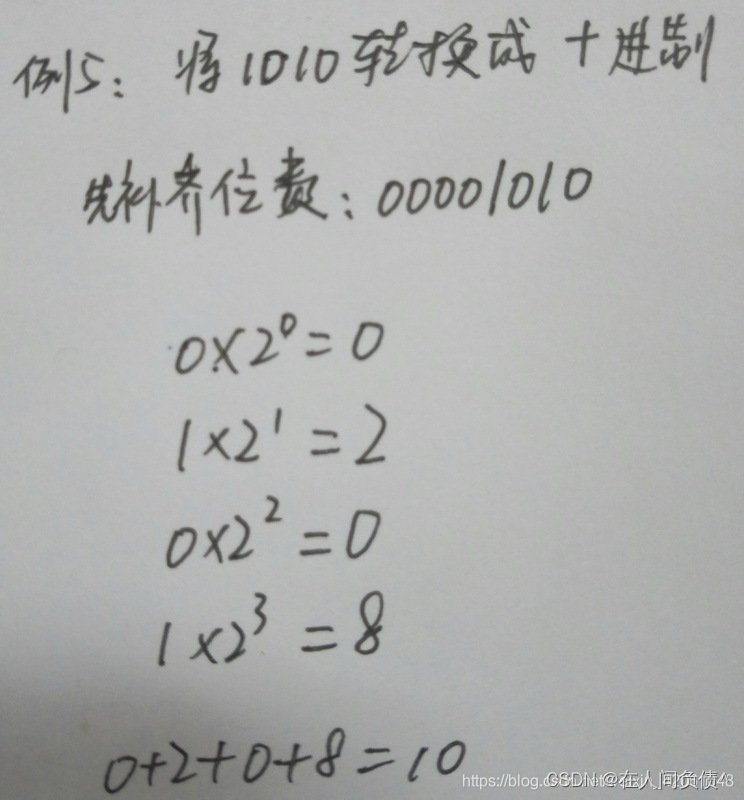 例5: 将1010转换成十进制
先补齐位数: 00001010
0×2⁰=0
1×2¹=2
0×2²=0
1×2³=8
0+2+0+8=10
https://blog.csdn.net
CSDN @在人间负债ㄑ